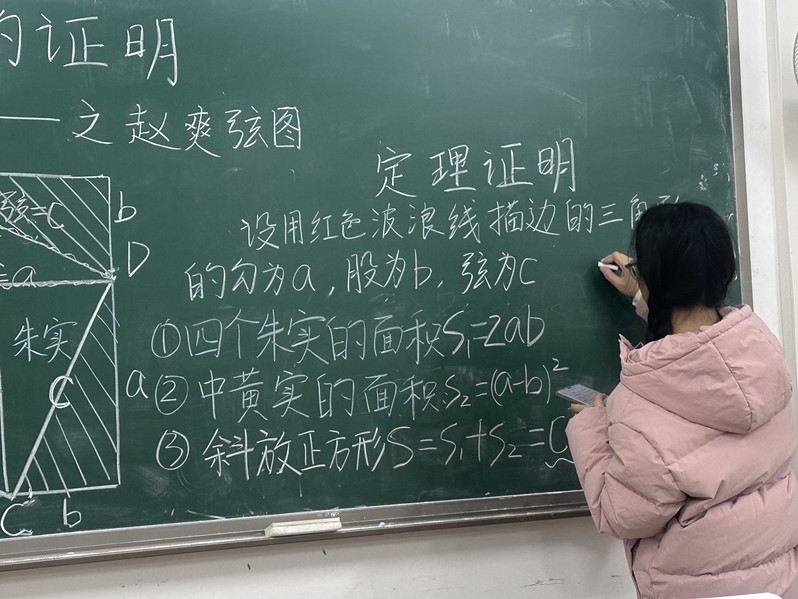 的证明
——之赵爽弦图
定理证明
设用红色波浪线描边的三角形
的勾为a,股为b,弦为c
①四个朱实的面积S₁=2ab
②中黄实的面积S₂=(a-b)²
③斜放正方形S=S₁+S₂=C
弦=C
b
D
a
朱实
C
a
C
b